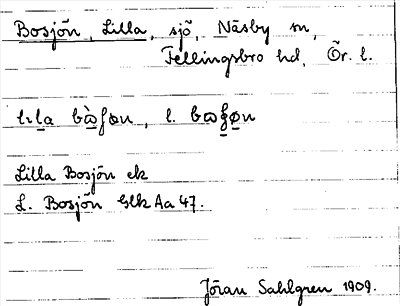 Bosjön, Lilla, sjö, Näsby sn,
Fellingsbro hd, Ör. l.
Lilla Bosjön ek
L. Bosjön Glk Aa 47.
Jöran Sahlgren 1909.